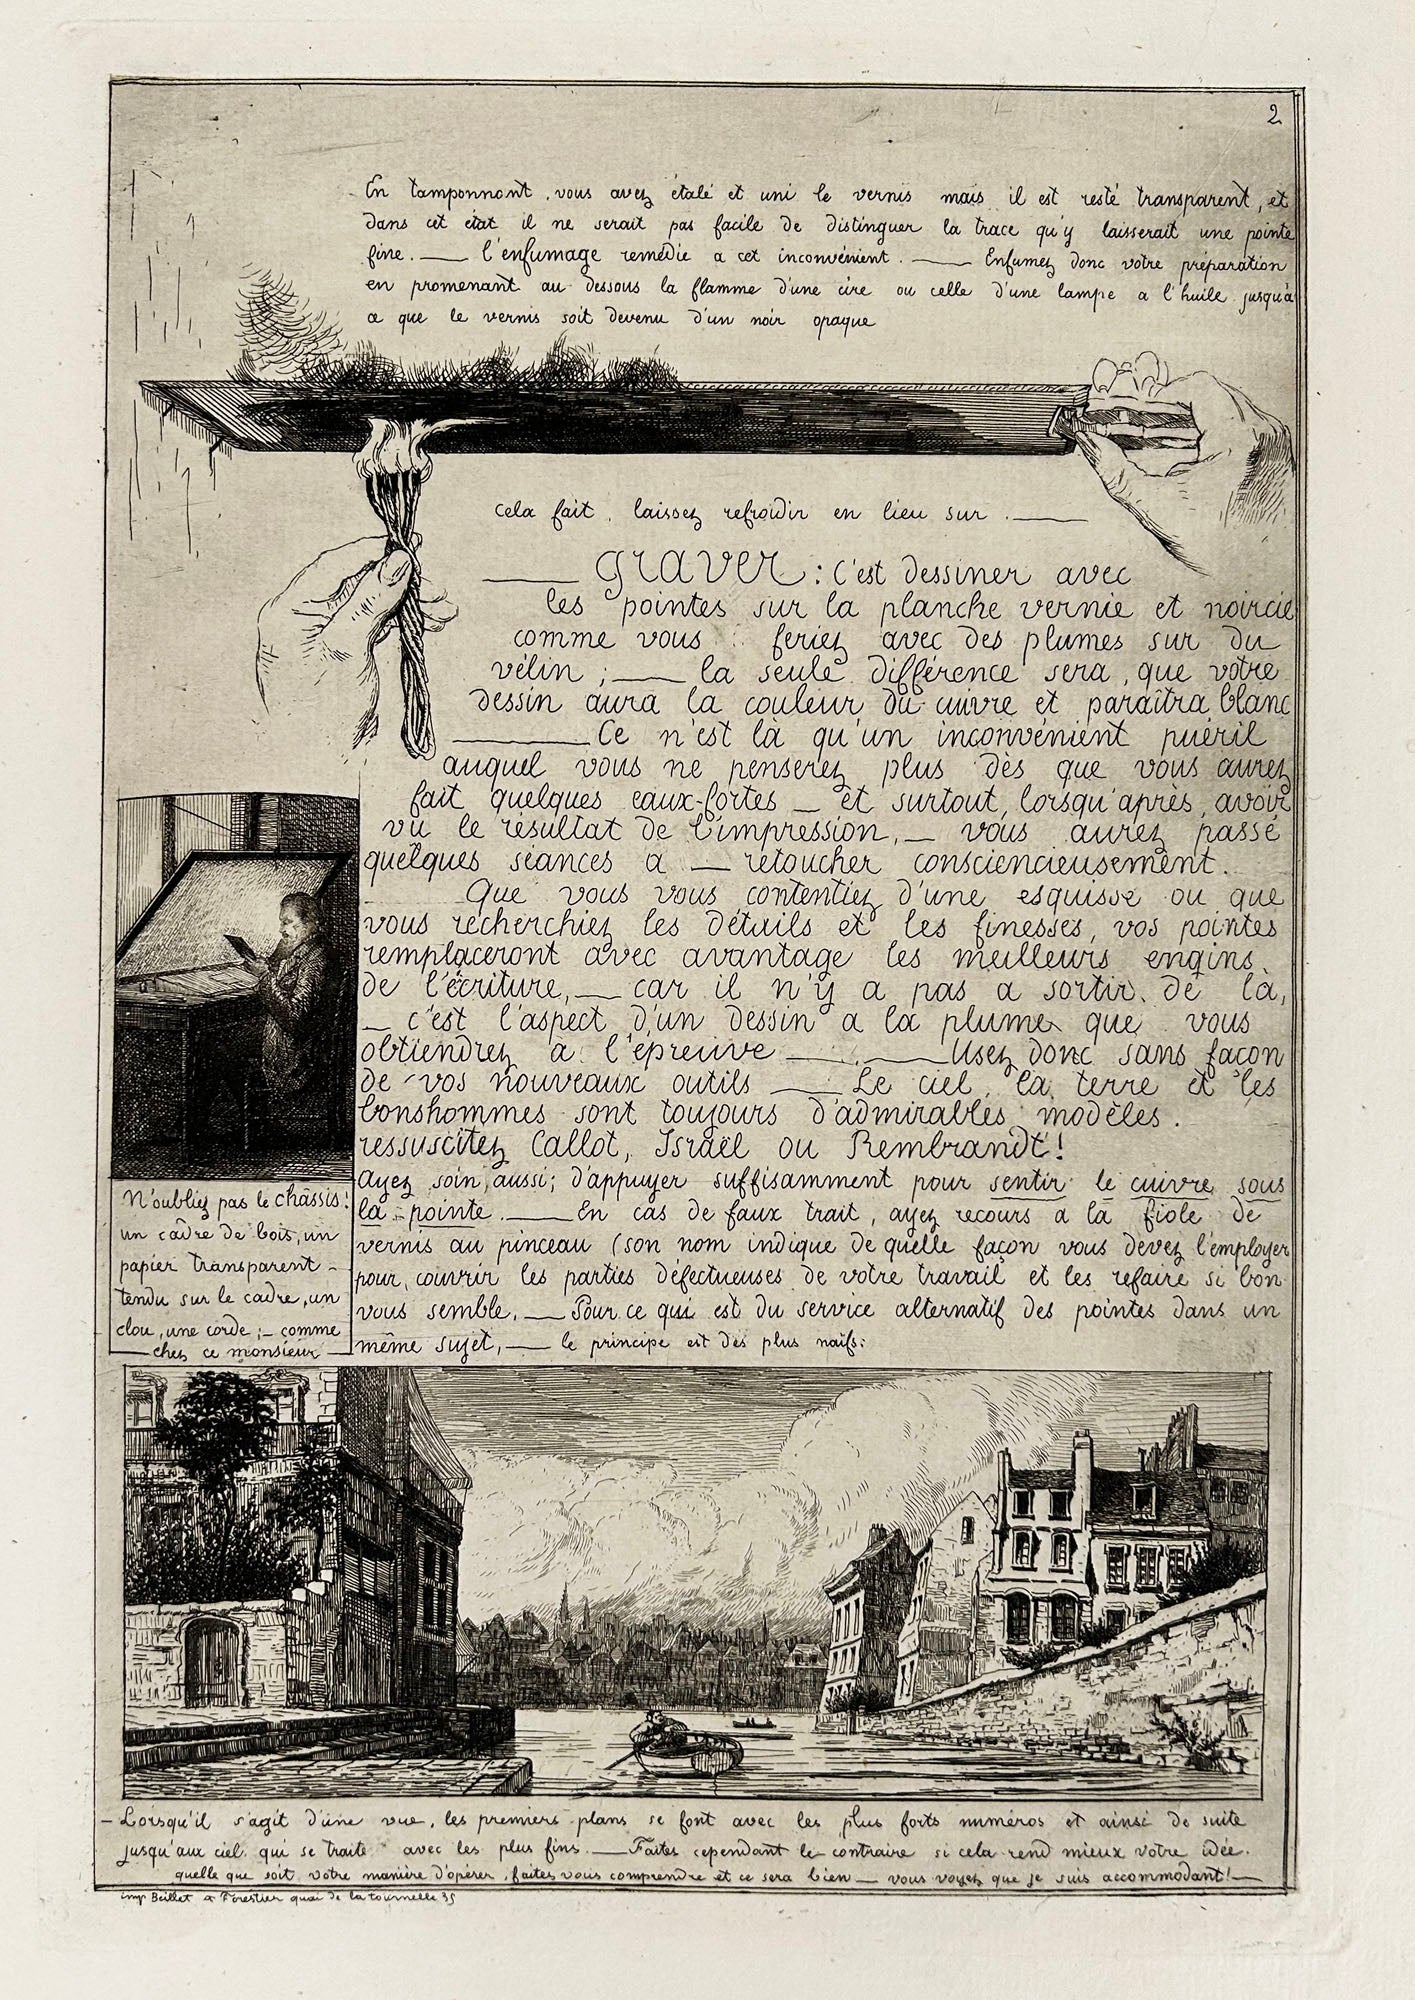 2
En tamponnant, vous avez étalé et uni le vernis mais il est resté transparent, et
dans cet état il ne serait pas facile de distinguer la trace qu'y laisserait une pointe
fine. — l'enfumage remédie a cet inconvénient. — Enfumez donc votre préparation
en promenant au dessous la flamme d'une cire ou celle d'une lampe a l'huile jusqu'à
ce que le vernis soit devenu d'un noir opaque
cela fait, laissez refroidir en lieu sur. —
— graver : C'est dessiner avec
les pointes sur la planche vernie et noircie
comme vous feriez avec des plumes sur du
vélin ; — la seule différence sera, que votre
dessin aura la couleur du cuivre et paraîtra blanc
— Ce n'est là qu'un inconvénient puéril
auquel vous ne penserez plus dès que vous aurez
fait quelques eaux-fortes — et surtout, lorsqu'après avoir
vu le résultat de l'impression, — vous aurez passé
quelques séances a — retoucher consciencieusement.
Que vous vous contentiez d'une esquisse ou que
vous recherchiez les détails et les finesses, vos pointes
remplaceront avec avantage les meilleurs engins
de l'écriture, — car il n'y a pas a sortir de là,
— c'est l'aspect d'un dessin a la plume que vous
obtiendrez à l'épreuve — — Usez donc sans façon
de vos nouveaux outils — Le ciel, la terre et les
bonshommes sont toujours d'admirables modèles.
ressuscitez Callot, Israël ou Rembrandt !
Ayez soin, aussi; d'appuyer suffisamment pour sentir le cuivre sous
la pointe. — En cas de faux trait, ayez recours a la fiole de
vernis au pinceau (son nom indique de quelle façon vous devez l'employer
pour couvrir les parties défectueuses de votre travail et les refaire si bon
vous semble. — Pour ce qui est du service alternatif des pointes dans un
même sujet, — le principe est des plus naïfs:
N'oubliez pas le châssis!
un cadre de bois, un
papier transparent —
tendu sur le cadre, un
clou, une corde; — comme
— chez ce monsieur —
— Lorsqu'il s'agit d'une vue, les premiers plans se font avec les plus forts numéros et ainsi de suite
jusqu'au ciel qui se traite avec les plus fins. — Faites cependant le contraire si cela rend mieux votre idée.
quelle que soit votre manière d'opérer, faites vous comprendre et ce sera bien — vous voyez que je suis accommodant! —
imp Beillet & Forestier quai de la tournelle 35